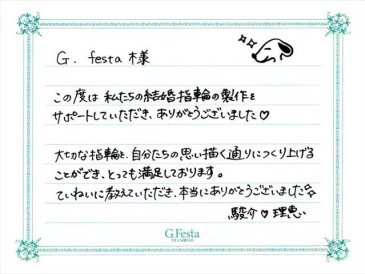 G. festa 様
この度は 私たちの結婚指輪の製作を
サポートしていただき、ありがとうございました♡
大切な指輪を、自分たちの思い描く通りにつくり上げる
ことができ、とっても満足しております。
ていねいに教えていただき、本当にありがとうございました☆
駿介♡理恵
G.Festa